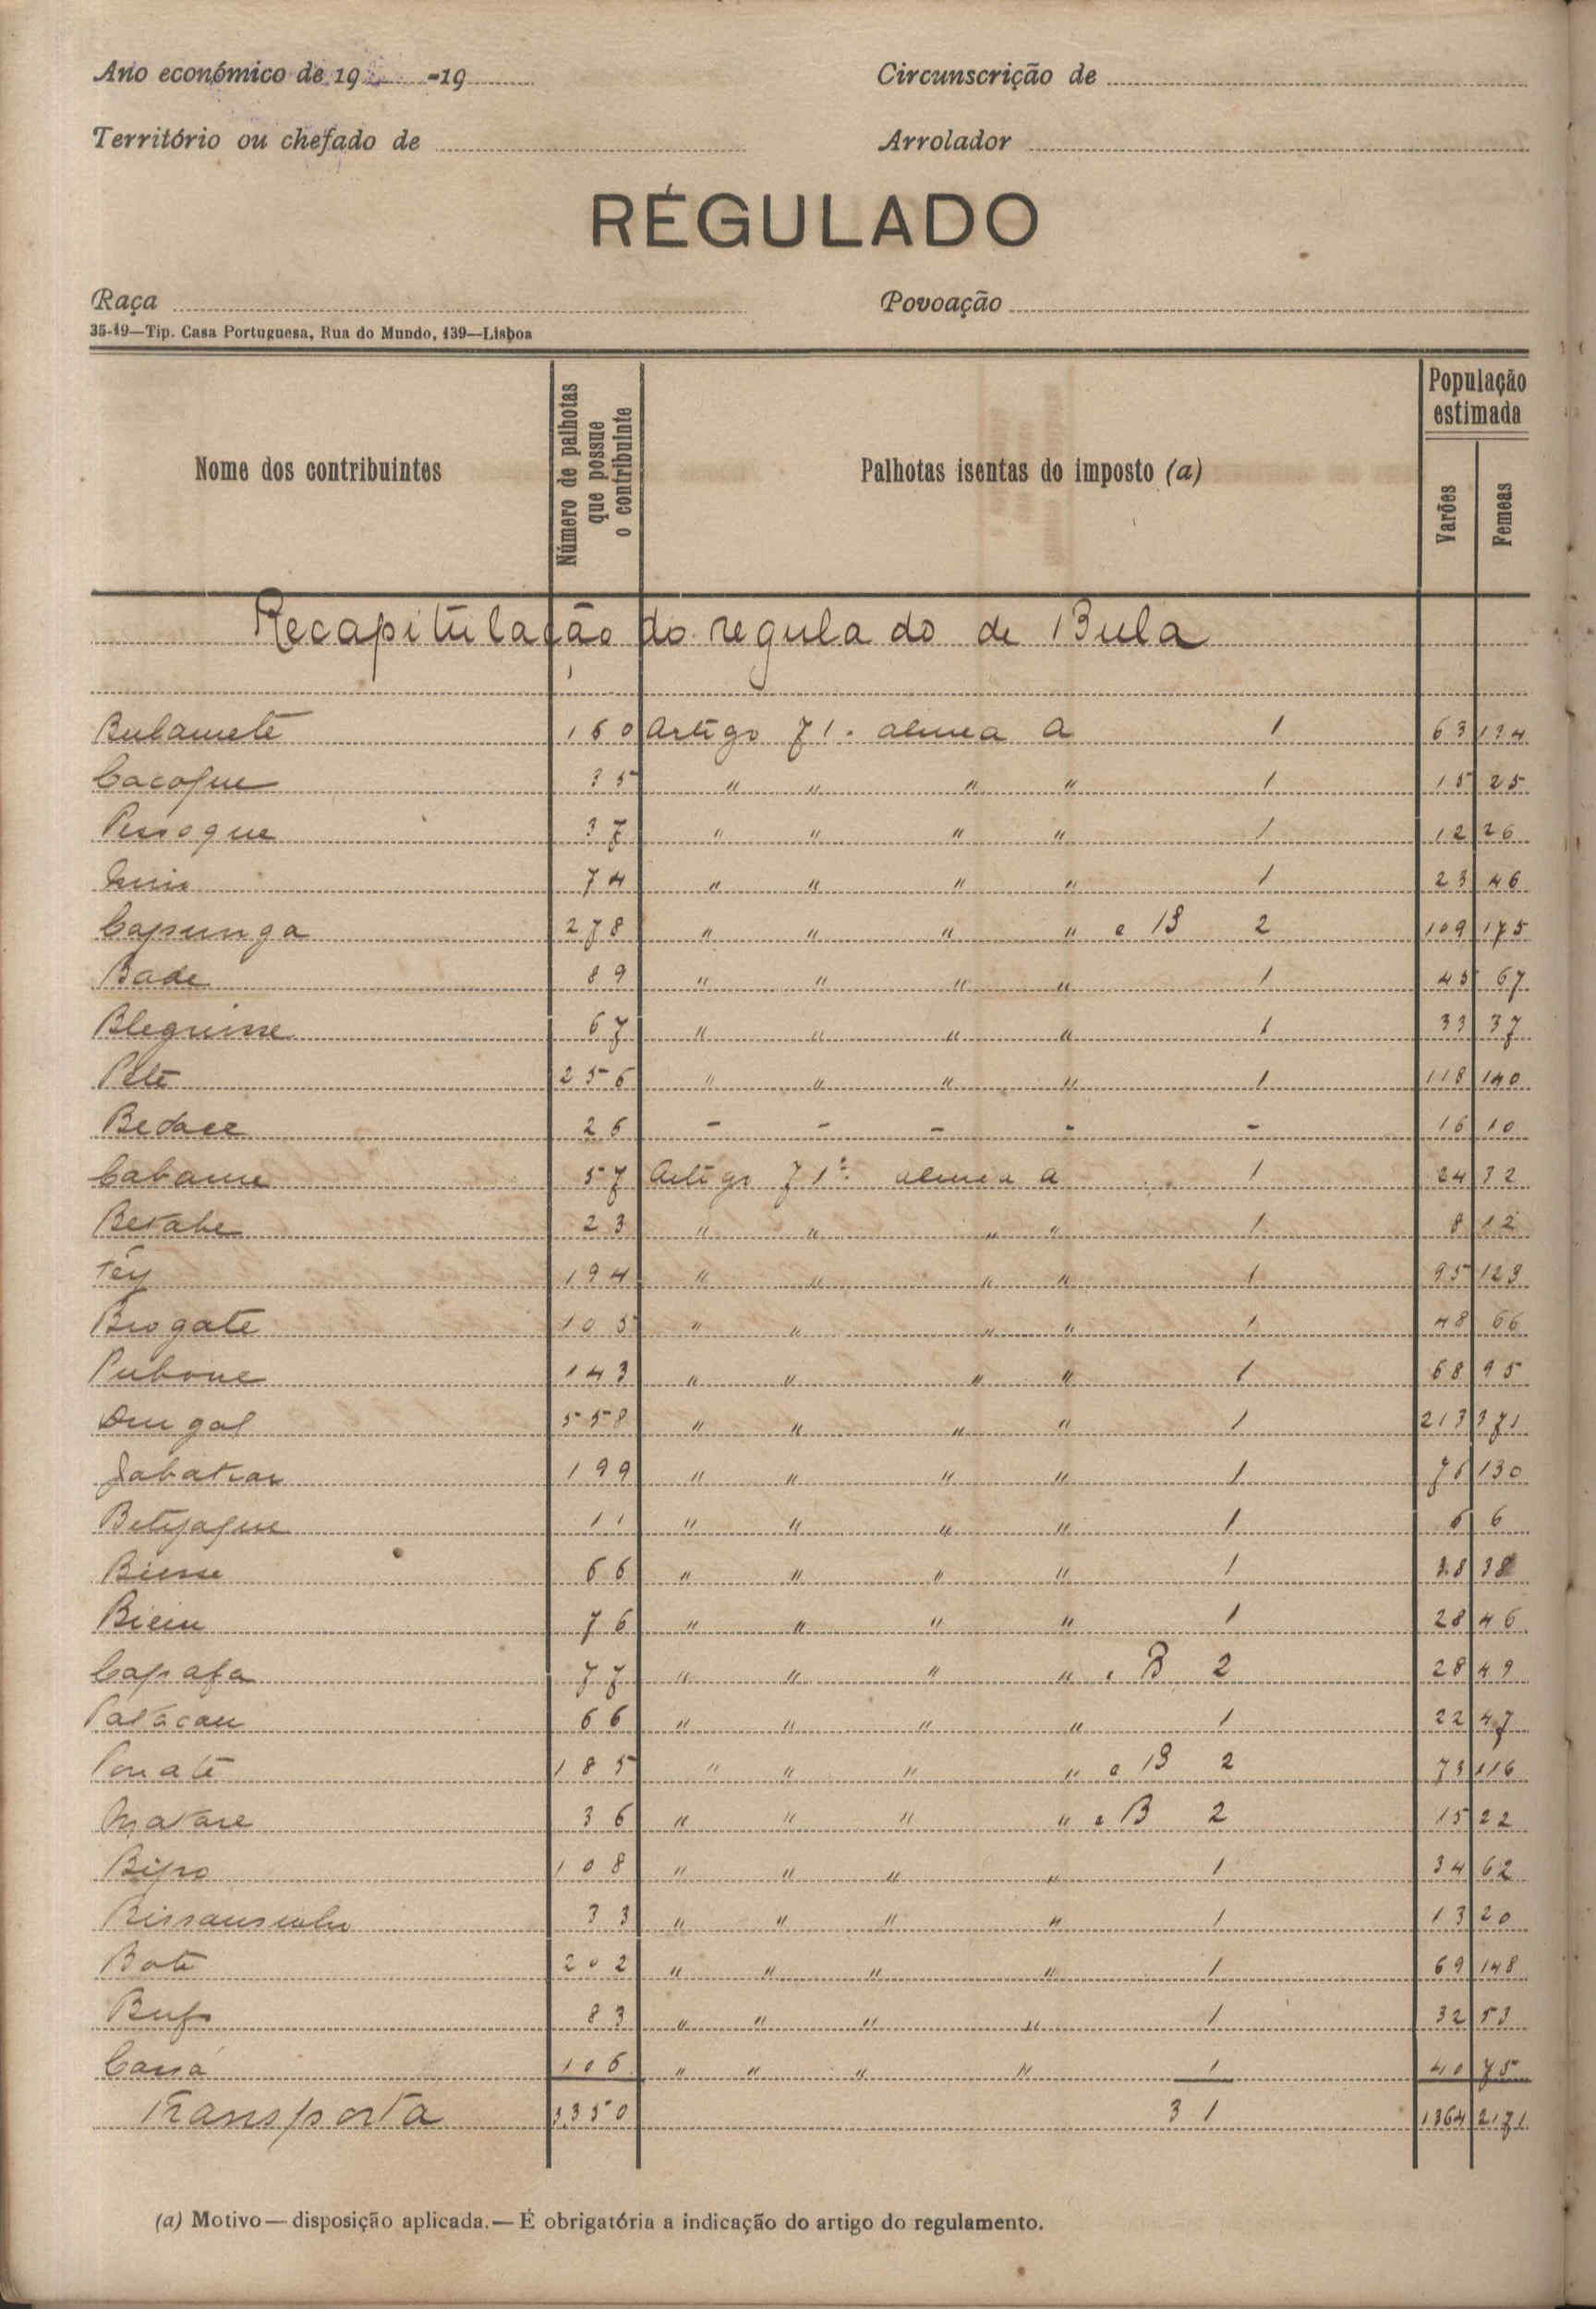 Ano económico de 19 -19
Circunscrição de
Território ou chefado de
Arrolador
RÉGULADO
Raça
Povoação
35-19—Tip. Casa Portuguesa, Rua do Mundo, 139—Lisboa
Nome dos contribuintes
Número de palhotas que possue o contribuinte
Palhotas isentas do imposto (a)
População estimada
Varões
Femeas
Recapitulação do regulado de Bula
Bulamete 160 Artigo 71. alinea A 1 63 134
Cacofue 35 " " " " 1 15 25
37 " " " " 1 12 26
74 " " " " 1 23 46
Capunga 278 " " " " e B 2 109 175
Bade 89 " " " " 1 45 67
Bleguisse 67 " " " " 1 33 37
Pete 256 " " " " 1 118 140
Bedace 26 - - - - - 16 10
Cabame 57 Artigo 71º alinea A 1 24 32
Berabe 23 " " " " 1 8 12
Tey 194 " " " " 1 95 123
Biogate 105 " " " " 1 48 66
Pubone 143 " " " " 1 68 95
558 " " " " 1 213 371
199 " " " " 1 130
11 " " " " 1 6 6
66 " " " " 1 38
76 " " " " 1 28 46
Capafa 77 " " " " e B 2 28 49
Patacau 66 " " " " 1 22 47
Ponate 185 " " " " e B 2 73 116
Matare 36 " " " " e B 2 15 22
Bipo 108 " " " " 1 34 62
33 " " " " 1 13 20
Bote 202 " " " " 1 69 148
83 " " " " 1 32 53
106 " " " " 1 40 75
Transporta 3.350 31 1364 2171
(a) Motivo—disposição aplicada.—É obrigatória a indicação do artigo do regulamento.